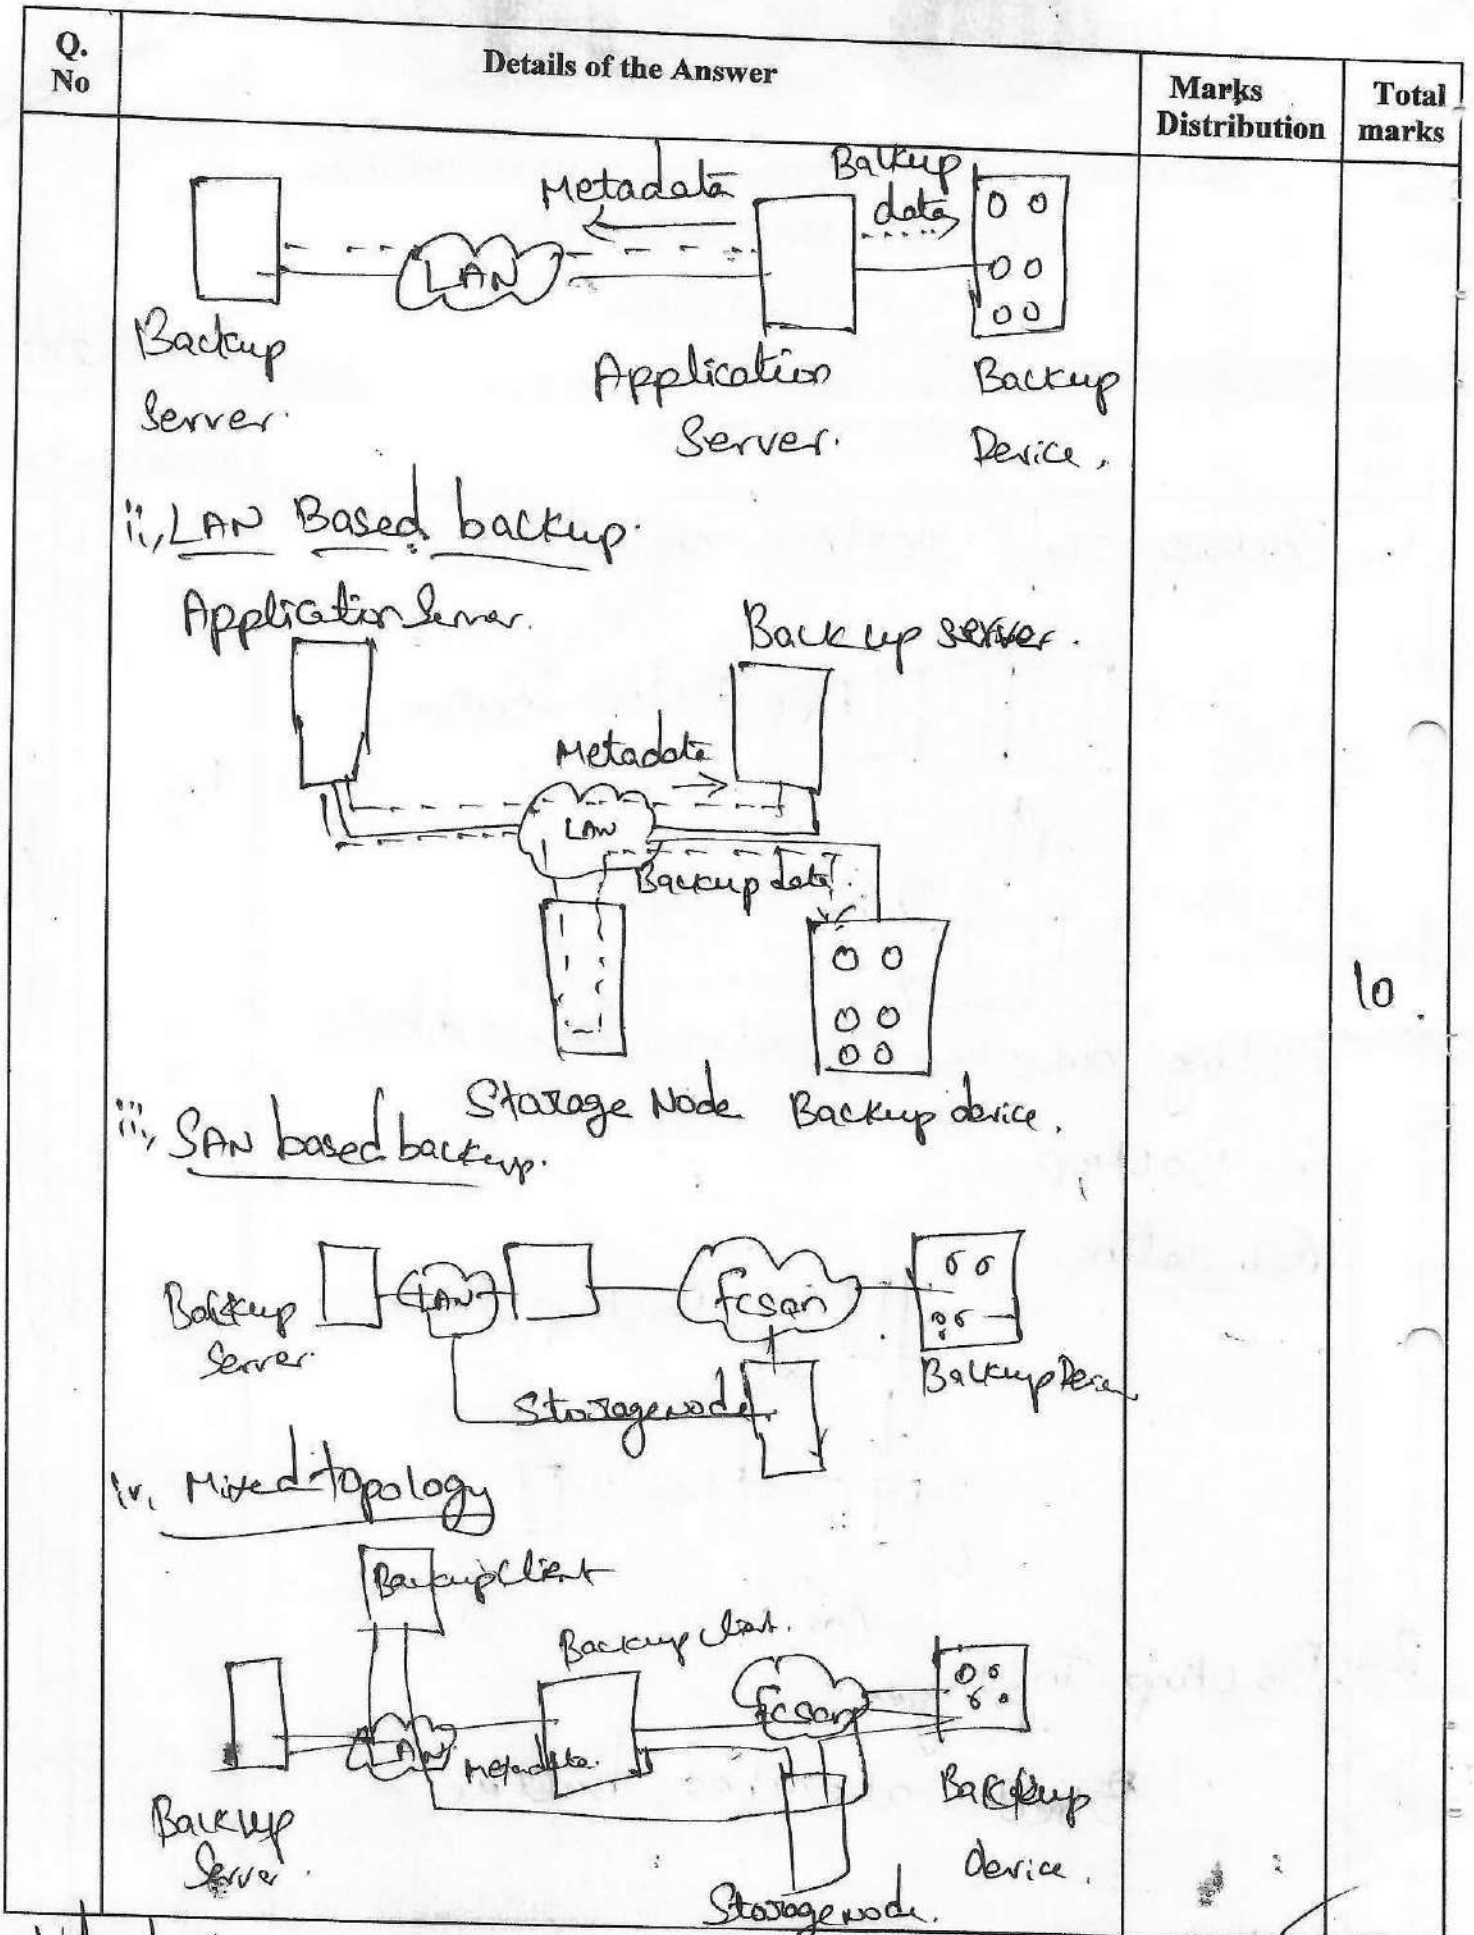 Q.
No
Details of the Answer
Marks
Distribution
Total
marks
Metadata
Backup
data
LAN
Backup
Server.
Application
Server.
Backup
Device.
ii, LAN Based backup.
Application Server.
Backup server.
Metadata
LAN
Backup data
Storage Node
Backup device.
10.
iii, SAN based backup.
Backup
Server.
LAN
fcsan
Storage node
Backup
iv. Mixed topology
Backup Client
Backup client.
fcsan
LAN
Metadata.
Backup
Server.
Backup
device.
Storage node.